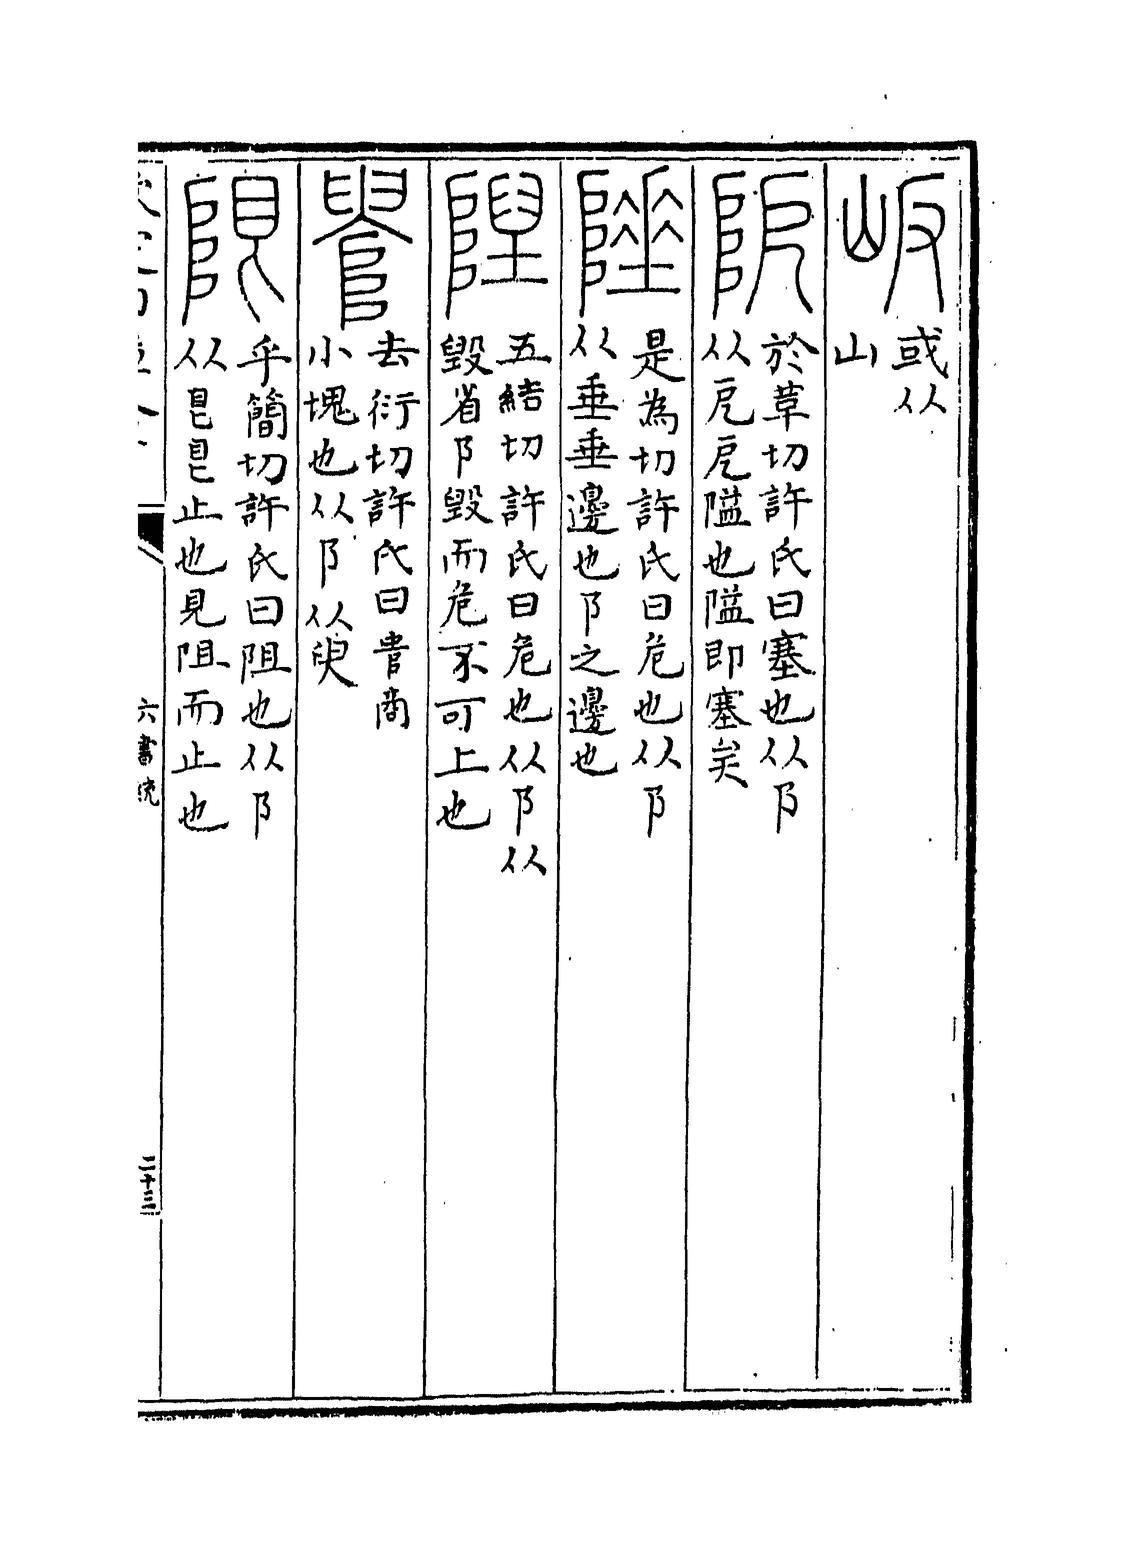 岅
或从
山
阸
於革切許氏曰塞也从阝
从戹戹隘也隘即塞矣
陲
是為切許氏曰危也从阝
从垂垂邊也阝之邊也
隉
五結切許氏曰危也从阝从
毀省阝毀而危不可上也
𠳋
去衍切許氏曰𠳋商
小塊也从阝从臾
限
乎簡切許氏曰阻也从阝
从皀皀止也見阻而止也
六書統
二十三